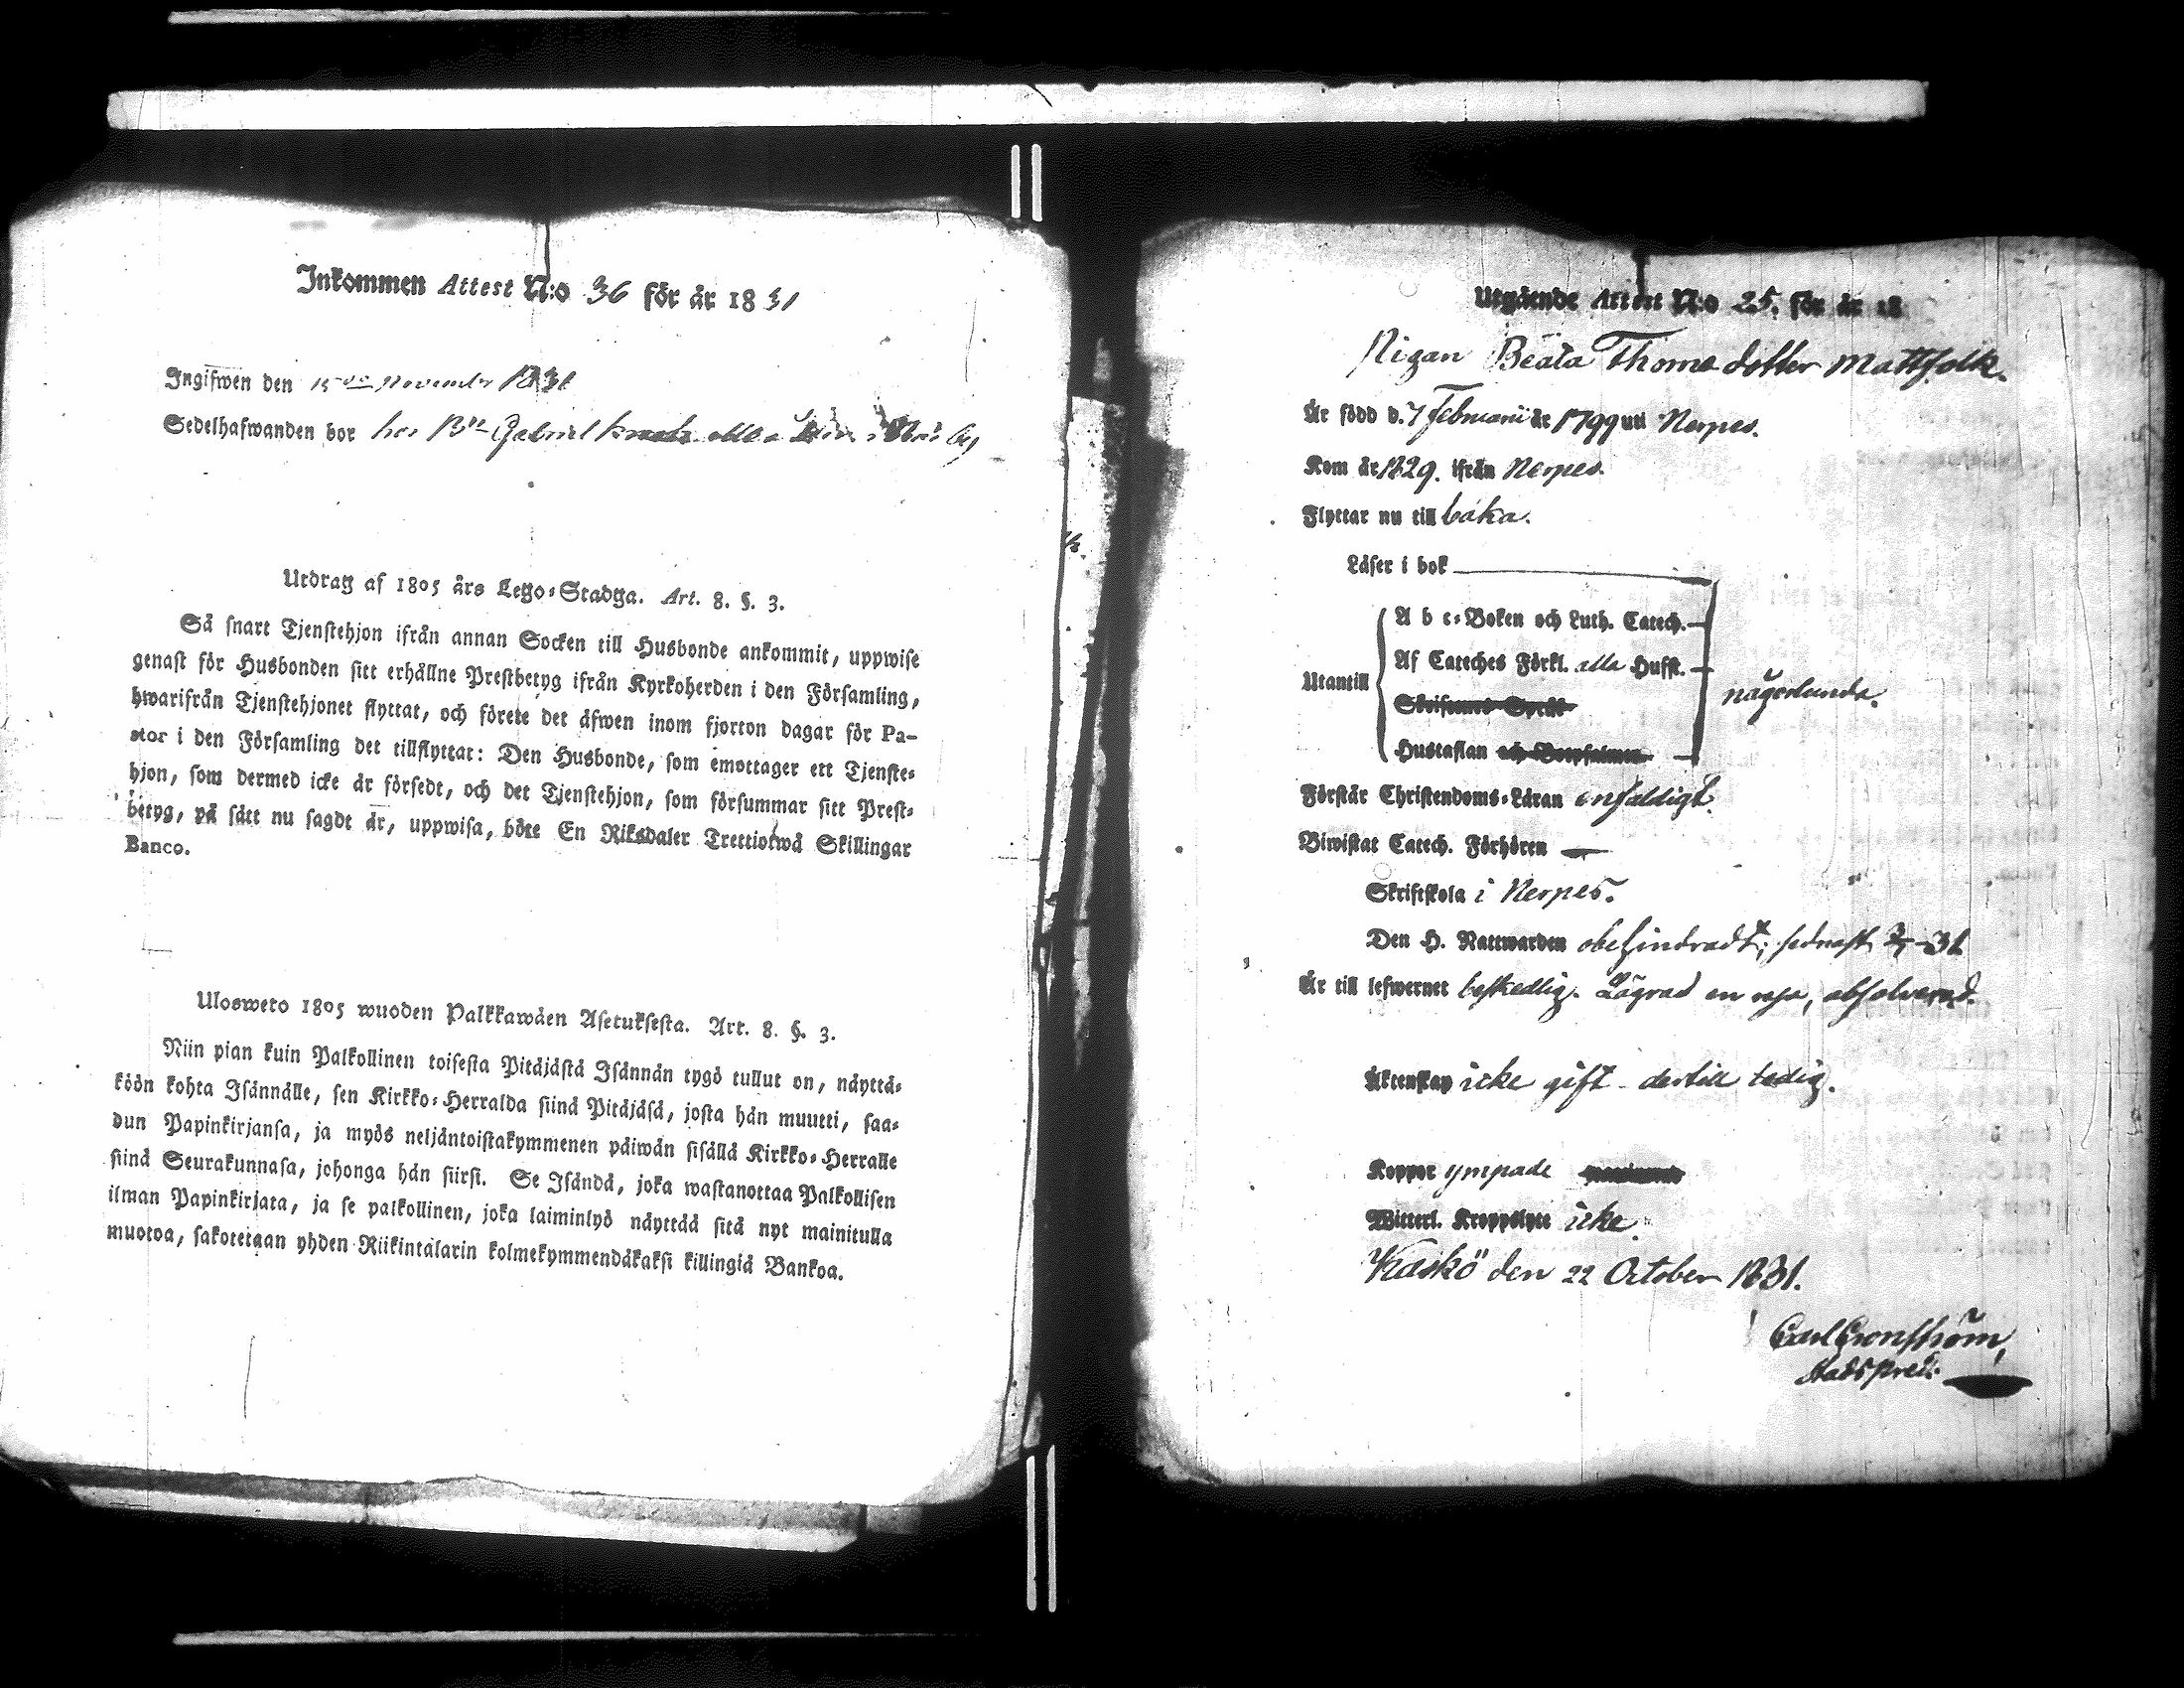 Inkommen Attest N:o 36 för år 1831
Ingifwen den 15de November 1831
Sedelhafwanden bor hos Bn Gabriel
Utdrag af 1805 års Lego-Stadga. Art. 8. §. 3.
Så snart Tjenstehjon ifrån annan Socken till Husbonde ankommit, uppwise
genast för Husbonden sitt erhållne Prestbetyg ifrån Kyrkoherden i den Församling,
hwarifrån Tjenstehjonet flyttat, och förete det äfwen inom fjorton dagar för Pa-
stor i den Församling det tillflyttat: Den Husbonde, som emottager ett Tjenste-
hjon, som dermed icke är försedt, och det Tjenstehjon, som försummar sitt Prest-
betyg, på sätt nu sagdt är, uppwisa, böte En Riksdaler Trettiotwå Skillingar
Banco.
Ulosweto 1805 wuoden Palkkawäen Asetuksesta. Art. 8. §. 3.
Niin pian kuin Palkollinen toisesta Pitäjästä Isännän tygö tullut on, näyttä-
köön kohta Isännälle, sen Kirkko-Herralda siinä Pitäjäsä, josta hän muutti, saa-
dun Papinkirjansa, ja myös neljäntoistakymmenen päiwän sisällä Kirkko-Herralle
siinä Seurakunnasa, johonga hän siirsi. Se Isändä, joka wastanottaa Palkollisen
ilman Papinkirjata, ja se palkollinen, joka laiminlyö näyttää sitä nyt mainitulla
muotoa, sakotetaan yhden Riikintalarin kolmekymmendäkaksi killingiä Bankoa.
Utgående Attest N:o 25. för år 18
Pigan Beata Thomsdotter Mattfolk.
Är född d. 7 Februarii år 1799 uti Nerpes.
Kom år 1829. ifrån Nerpes.
Flyttar nu till baka.
Läser i bok
A b c-Boken och Luth. Catech.
Af Cateches Förkl. alla Hufst.
Utantill
någorlunda.
Skriftenes Språk
Hustaflan och Botpsalmen
Förstår Christendoms-Läran enfaldigt.
Biwistat Catech. Förhören —
Skriftskola i Nerpes.
Den H. Nattwarden obehindradt; sednast
Är till lefwernet beskedlig. Lägrad en resa, absolverad.
Äktenskap icke gift - dertill ledig.
Koppor ympade
Witterl. Kroppslyte icke.
Kaskö den 22 October 1831.
Carl Cronström,
Stadspred.